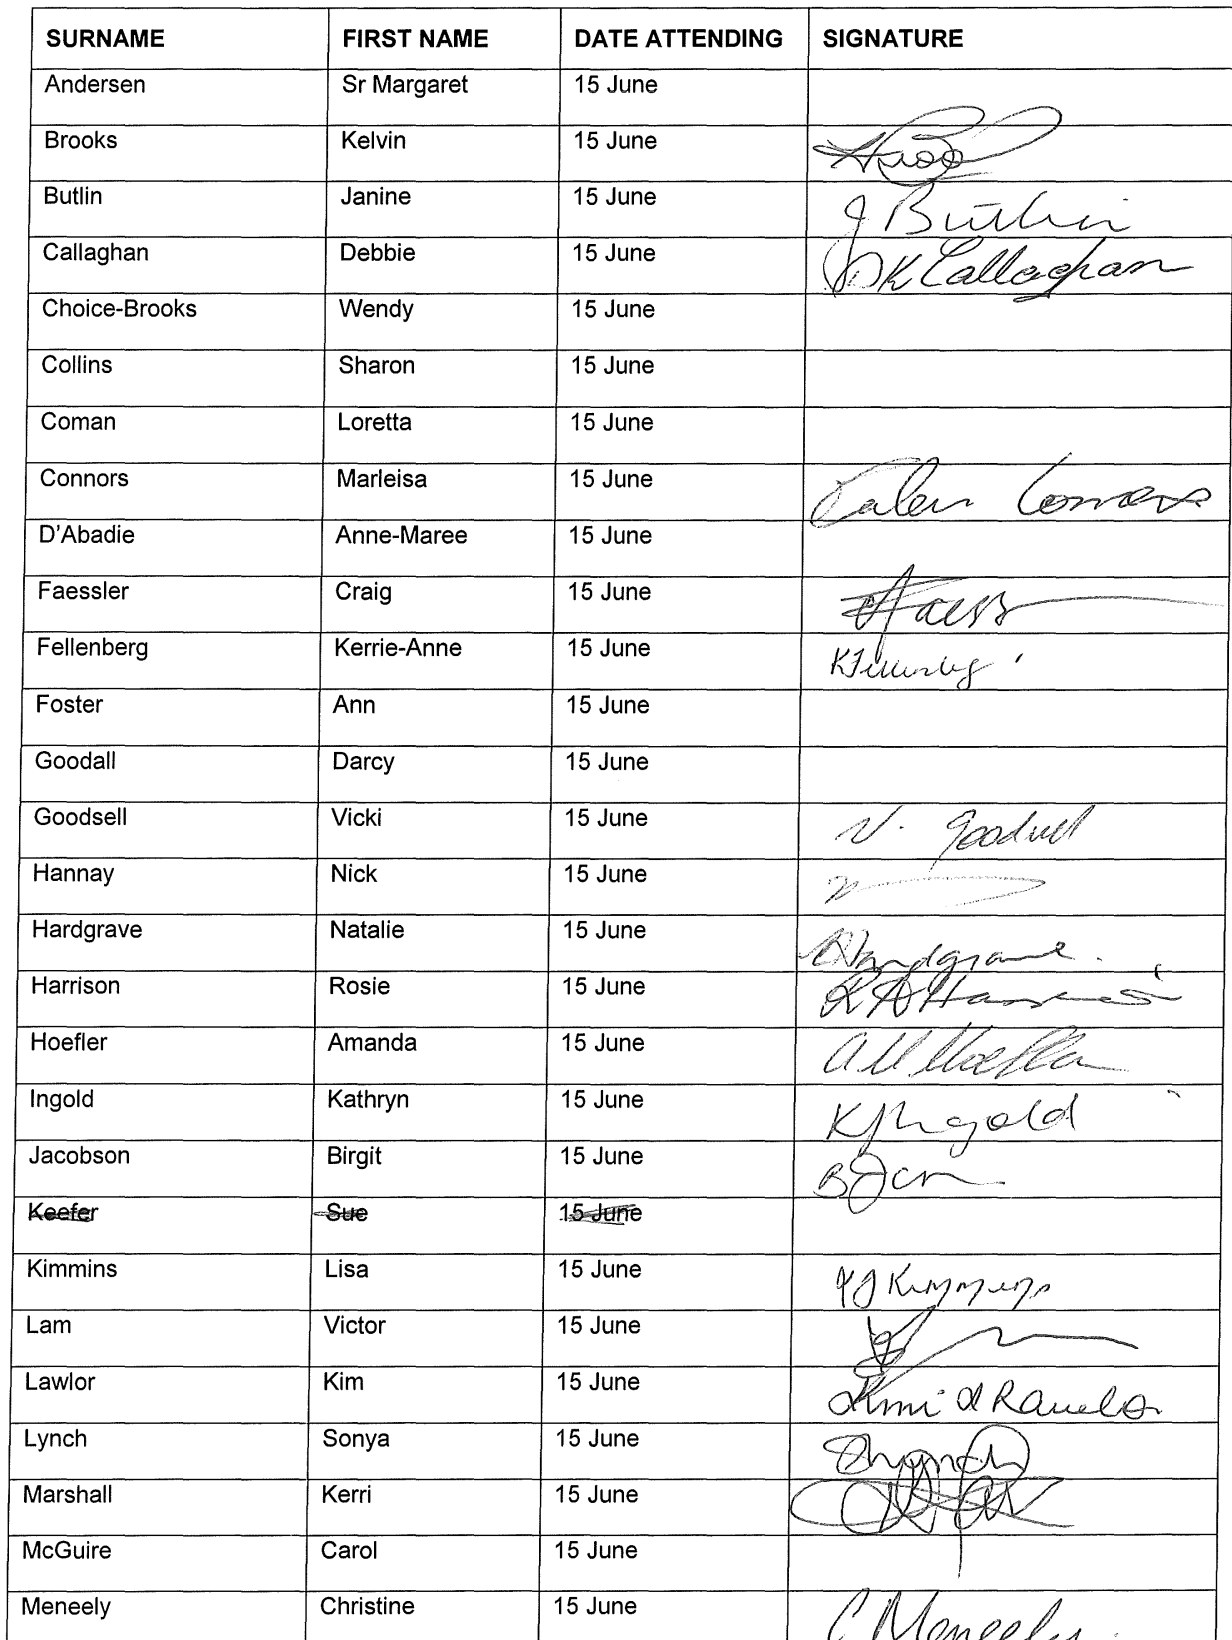 SURNAME FIRST NAME DATE ATTENDING SIGNATURE
Andersen Sr Margaret 15 June
Brooks Kelvin 15 June
Butlin Janine 15 June J Butlin
Callaghan Debbie 15 June DK Callaghan
Choice-Brooks Wendy 15 June
Collins Sharon 15 June
Coman Loretta 15 June
Connors Marleisa 15 June Connors
D'Abadie Anne-Maree 15 June
Faessler Craig 15 June
Fellenberg Kerrie-Anne 15 June
Foster Ann 15 June
Goodall Darcy 15 June
Goodsell Vicki 15 June V. Goodsell
Hannay Nick 15 June
Hardgrave Natalie 15 June Hardgrave
Harrison Rosie 15 June
Hoefler Amanda 15 June
Ingold Kathryn 15 June KJIngold
Jacobson Birgit 15 June
Keefer Sue 15 June
Kimmins Lisa 15 June Kimmins
Lam Victor 15 June
Lawlor Kim 15 June
Lynch Sonya 15 June
Marshall Kerri 15 June
McGuire Carol 15 June
Meneely Christine 15 June C Meneely